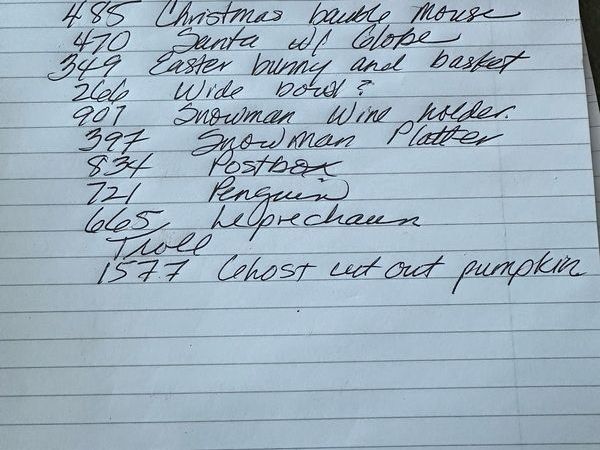 485 Christmas bauble Mouse
470 Santa w/ Globe
349 Easter bunny and basket
266 Wide bowl?
907 Snowman Wine holder.
397 Snowman Platter
834 Postbox
721 Penguin
665 Leprechaun
Troll
1577 Ghost cut out pumpkin